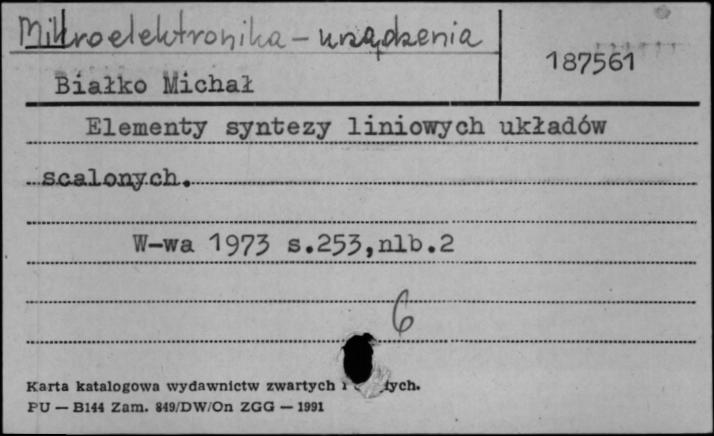 Mikroelektronika – urządzenia
187561
Białko Michał
Elementy syntezy liniowych układów
scalonych.
W-wa 1973 s.253,nlb.2
6
Karta katalogowa wydawnictw zwartych i
PU — B144 Zam. 849/DW/On ZGG — 1991